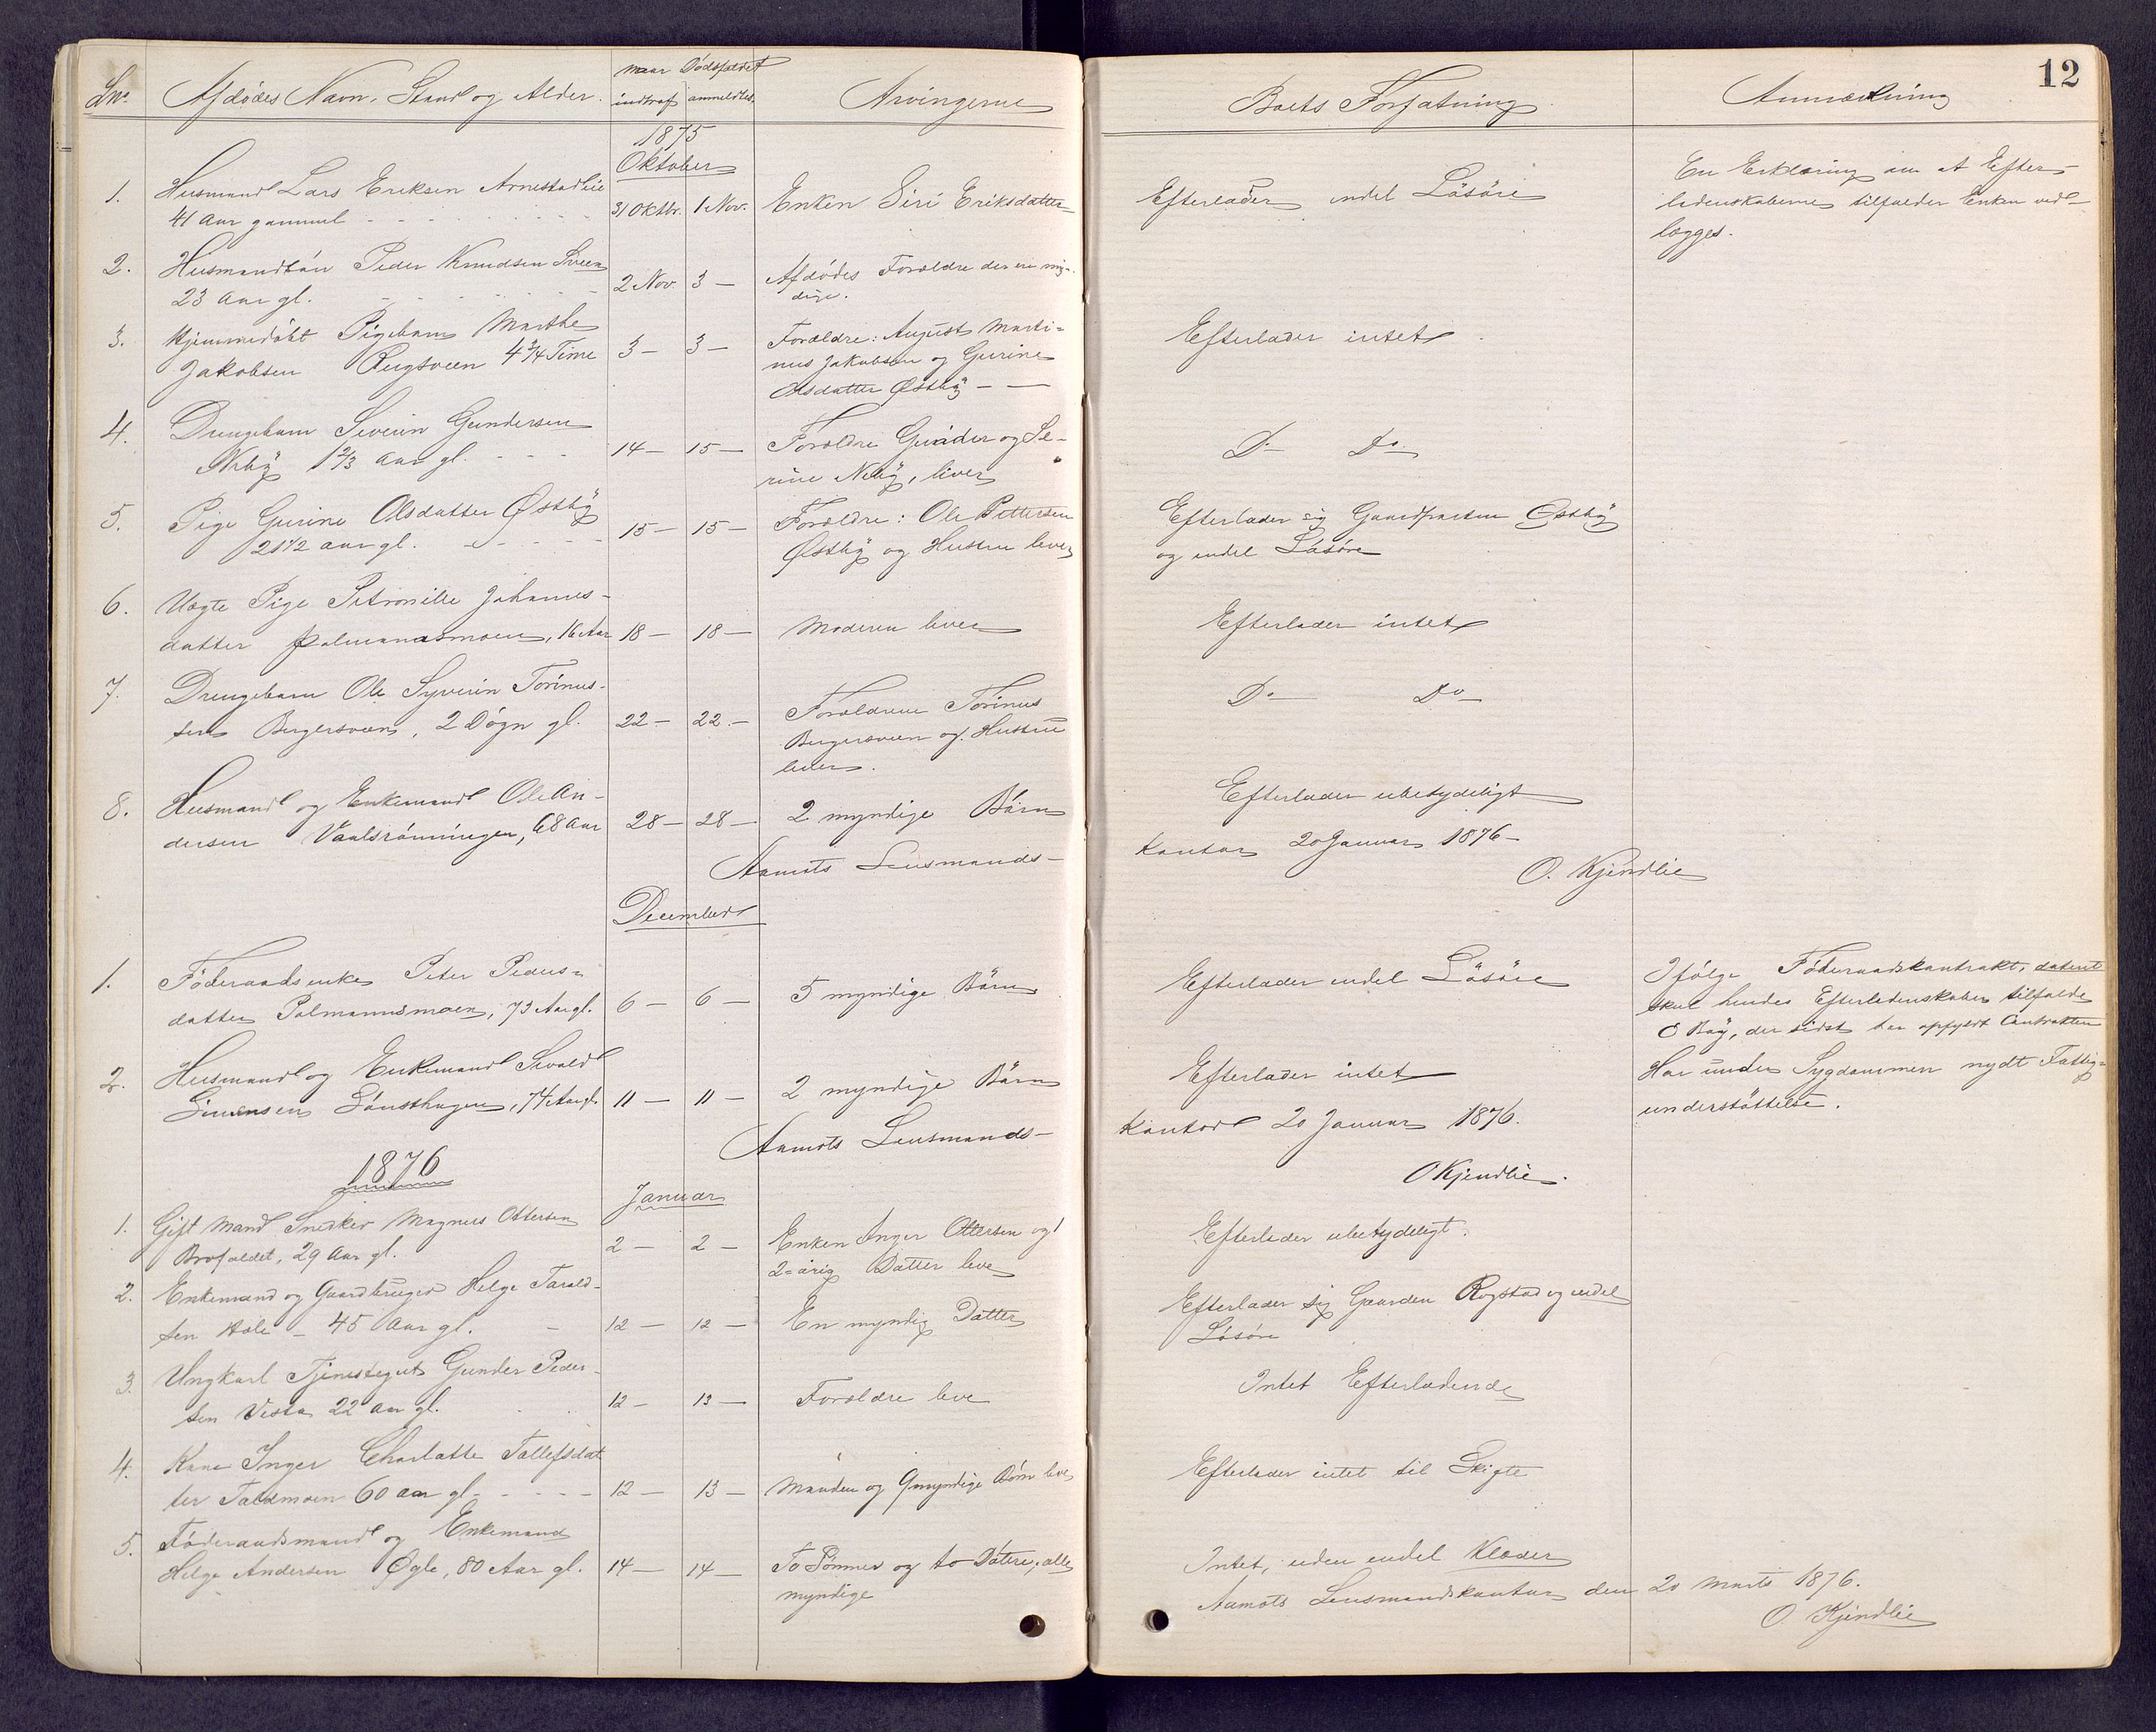 12
Lne. Afdødes Navn, Stand og Alder. naar Dødsfaldet indtraf anmeldtes. Arvingerne Boets Forfatning Anmærkning
1875
Oktober
1. Husmand Lars Eriksen Arnestadlie
41 Aar gammel - - - 31 Oktbr. 1 Nov. Enken Siri Eriksdatter Efterlader endel Løsøre
En Erklæring om at Efter-
ladenskaberne tilfalder Enken ved-
lægges.
2. Husmandsøn Peder Knudsen Sveen
23 Aar gl. - - - 2 Nov. 3 — Afdødes Forældre der ere myn-
dige. Efterlader intet
3. Hjemmedøbt Pigebarn Marthe
Jakobsen 4 3/4 Time 3 — 3 — Forældre: August Marti-
nus Jakobsen og Gurine
Olsdatter Østby — —
4. Drengebarn Severin Gundersen
Neby 1 2/3 Aar gl. - - - 14 — 15 — Forældre Gunder og Se-
rine Neby, lever Do Do
5. Pige Gurine Olsdatter Østby
21 1/2 aar gl. - - - 15 — 15 — Forældre: Ole Pettersen
Østby og Hustru lever Efterlader sig Gaardparten Østby
og endel Løsøre
6. Uægte Pige Petronille Johannes-
datter Palmansmoen, 16 Aar 18 — 18 — Moderen lever Efterlader intet
7. Drengebarn Ole Syverin Torinus-
sen Bergersveen, 2 Døgn gl. 22 — 22 — Forældrene Torinus
Bergersveen og Hustru
lever. Do Do
8. Husmand og Enkemand Ole An-
dersen Vaalsrønningen, 68 Aar 28 — 28 — 2 myndige Børn Efterlader ubetydeligt
Aamots Lensmands-
kontor 20 Januar 1876 —
O. Kjendlie
December
1. Føderaadsenke Peter Peders-
datter Palmannsmoen, 73 Aar gl. 6 — 6 — 5 myndige Børn Efterlader endel Løsøre
Ifølge Føderaadskontrakt, dateret
skal hendes Efterladenskaber tilfalde
O Bay, der sidst har opfyldt Contrakten
2. Husmand og Enkemand Sevald
Simensen Lønsthagen, 74 Aar gl. 11 — 11 — 2 myndige Børn Efterlader intet
Har under Sygdommen nydt Fattig-
understøttelse.
Aamots Lensmands-
kontor 20 Januar 1876.
O Kjendlie.
1876
Januar
1. Gift Mand Snedker Magnus Ottersen
Brofaldet, 29 Aar gl. 2 — 2 — Enken Inger Ottersen og 1
2-årig Datter leve Efterlader ubetydeligt.
2. Enkemand og Gaardbruger Helge Tarald-
sen Hole - 45 Aar gl. — 12 — 12 — En myndig Datter Efterlader sig Gaarden Rogstad og endel
Løsøre
3. Ungkarl Tjenestegut Gunder Peder-
sen Vesta 22 Aar gl. 12 — 13 — Forældre leve Intet Efterladende
4. Kone Inger Charlotte Tollefsdat-
ter Taldmoen 60 Aar gl. - - - 12 — 13 — Manden og 9 myndige Børn leve Efterlader intet til Skifte
5. Føderaadsmand og Enkemand
Helge Andersen Øgle, 80 Aar gl. 14 — 14 — To Sønner og to Døtre, alle
myndige Intet, uden endel Klæder
Aamots Lensmandskontor den 20 Marts 1876.
O. Kjendlie